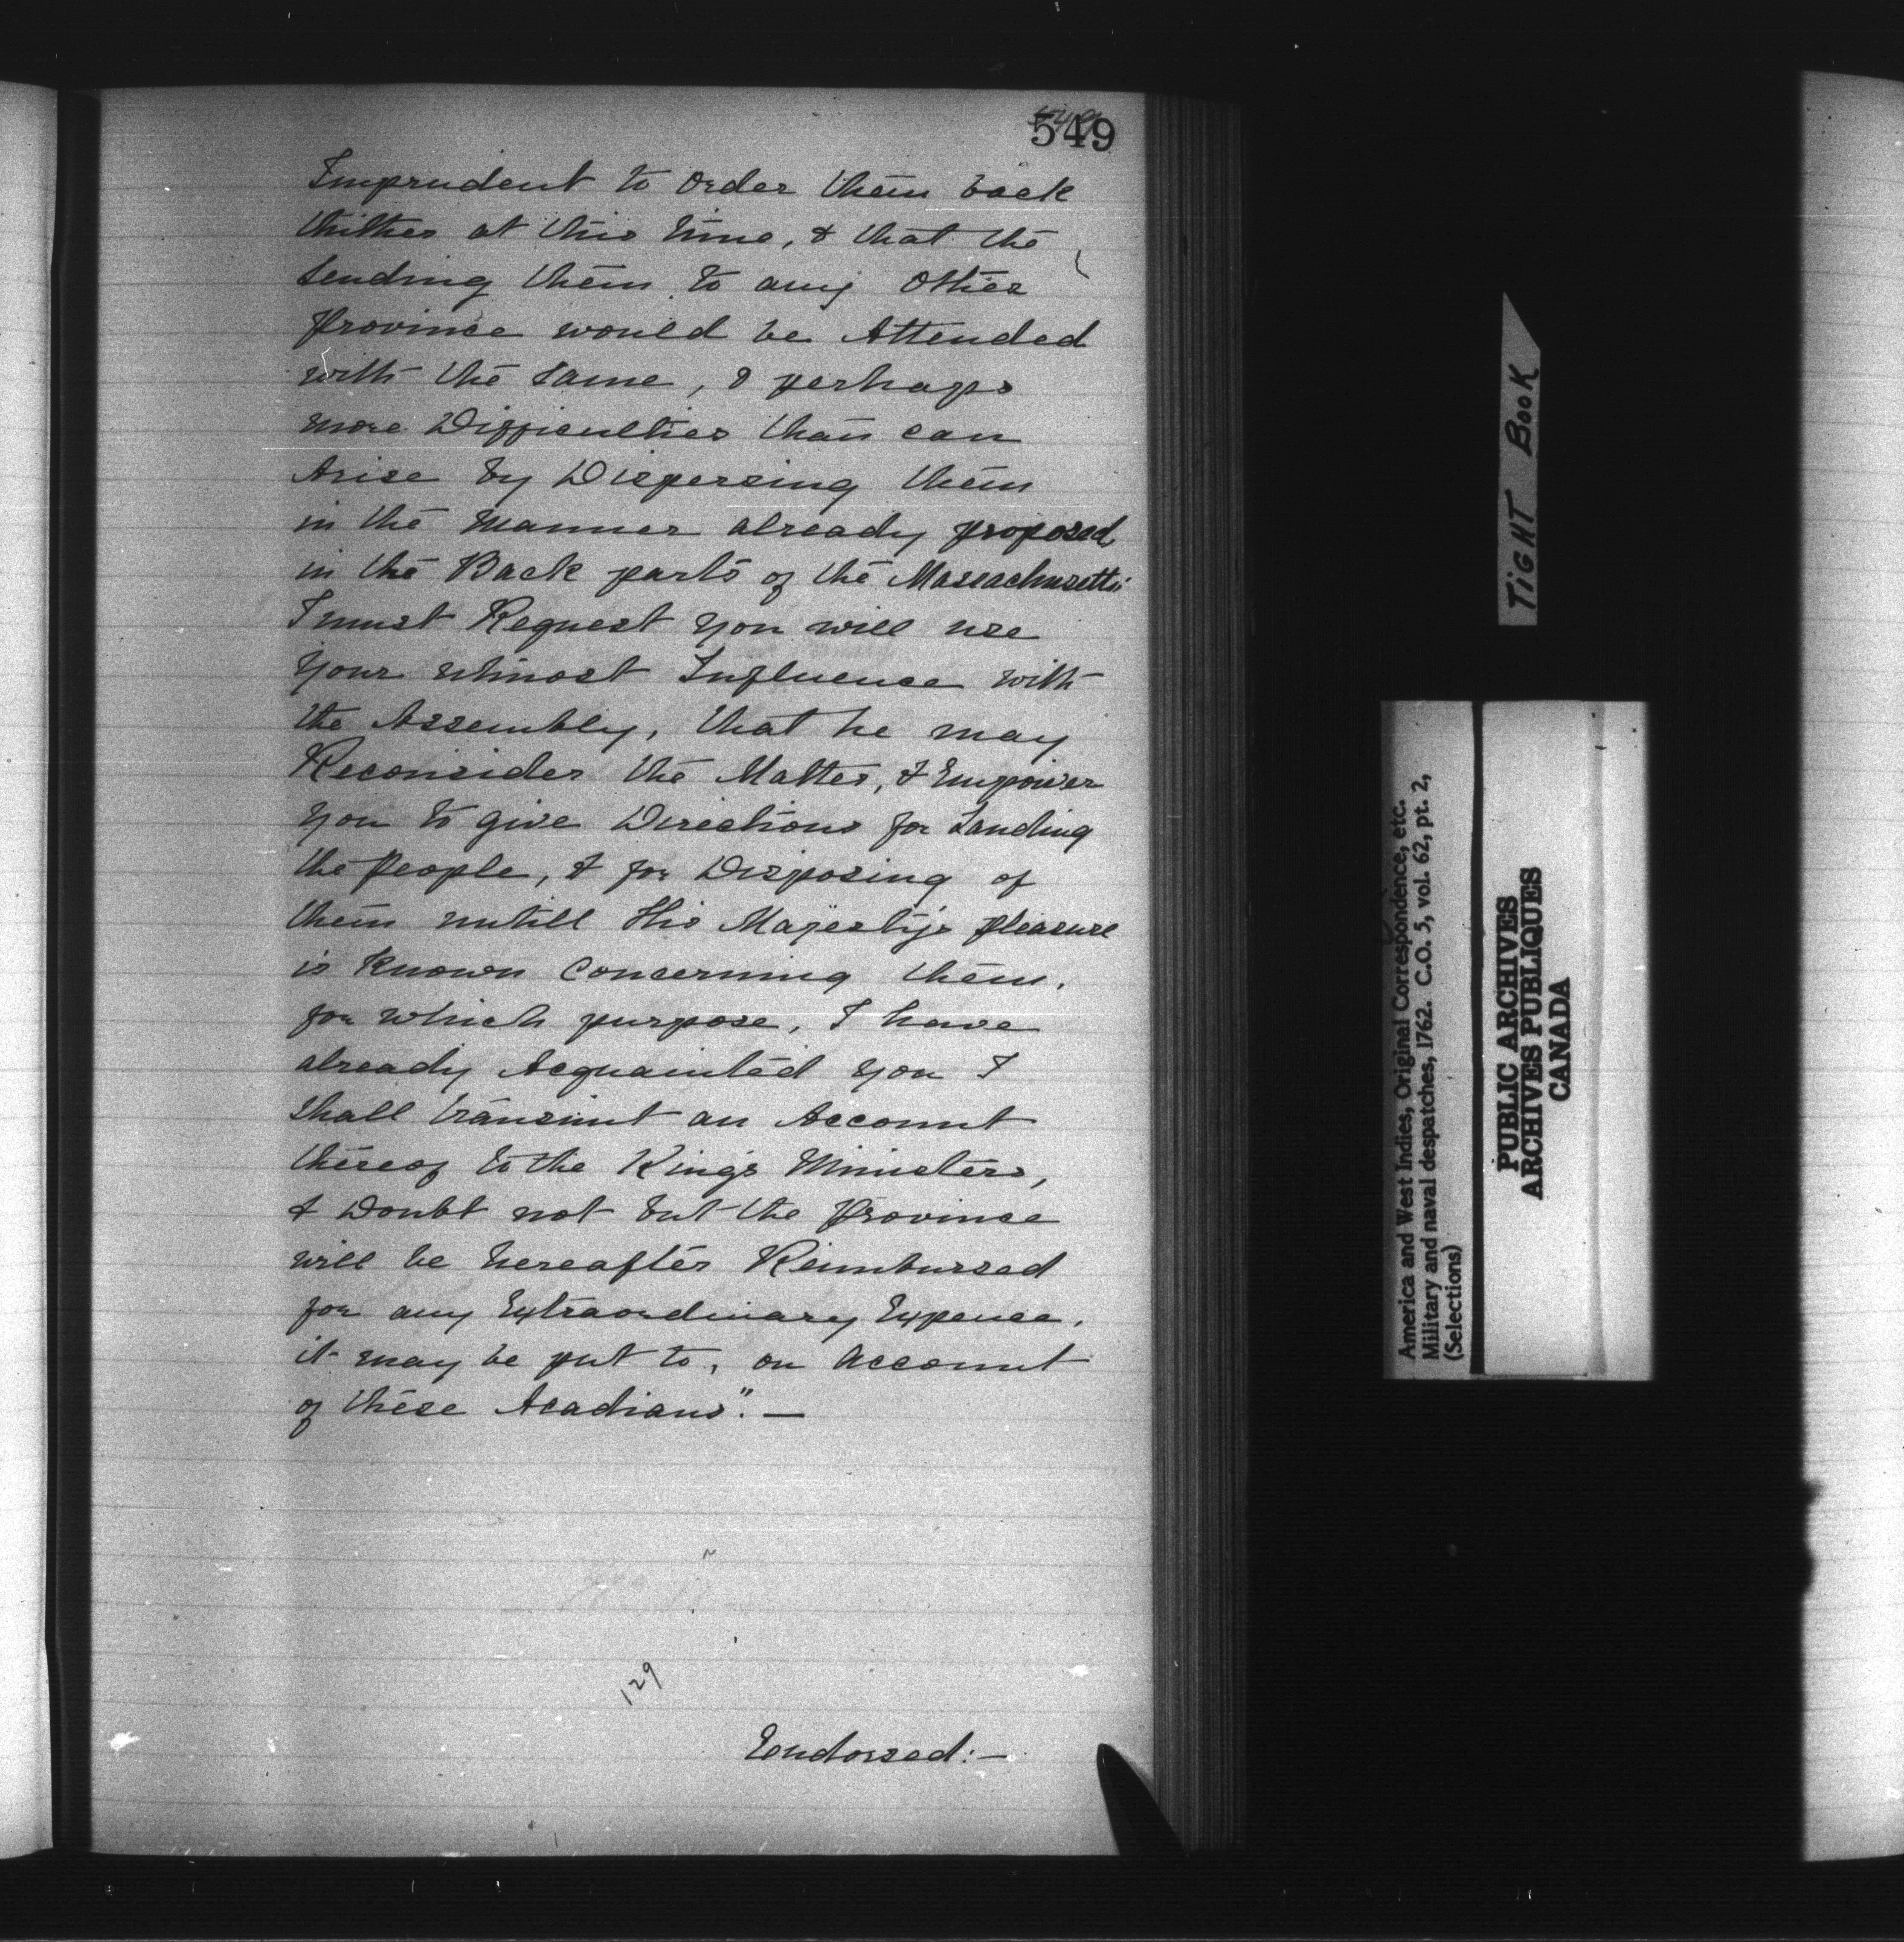 549
Imprudent to order them back
thither at this time, & that the
sending them to any Other
Province would be Attended
with the same, & perhaps
more Difficulties than can
Arise by Dispersing them
in the Manner already proposed
in the Back parts of the Massachusetts
I must Request you will use
your utmost Influence with
the Assembly, that he may
Reconsider the Matter, & Empower
you to give Directions for Landing
the People, & for Disposing of
them untill His Majesty's pleasure
is Known Concerning them,
for which purpose, I have
already Acquainted you I
shall transmit an Account
thereof to the King's Ministers,
& Doubt not but the Province
will be hereafter Reimbursed
for any Extraordinary Expence,
it may be put to, on account
of these Acadians". —
129
Endorsed: —
TIGHT BOOK
America and West Indies, Original Correspondence, etc.
Military and naval despatches, 1762. C.O. 5, vol. 62, pt. 2,
(Selections)
PUBLIC ARCHIVES
ARCHIVES PUBLIQUES
CANADA